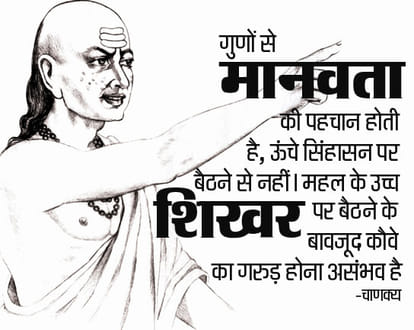 गुणों से
मानवता
की पहचान होती
है, ऊंचे सिंहासन पर
बैठने से नहीं। महल के उच्च
शिखर पर बैठने के
बावजूद कौवे
का गरुड़ होना असंभव है
-चाणक्य